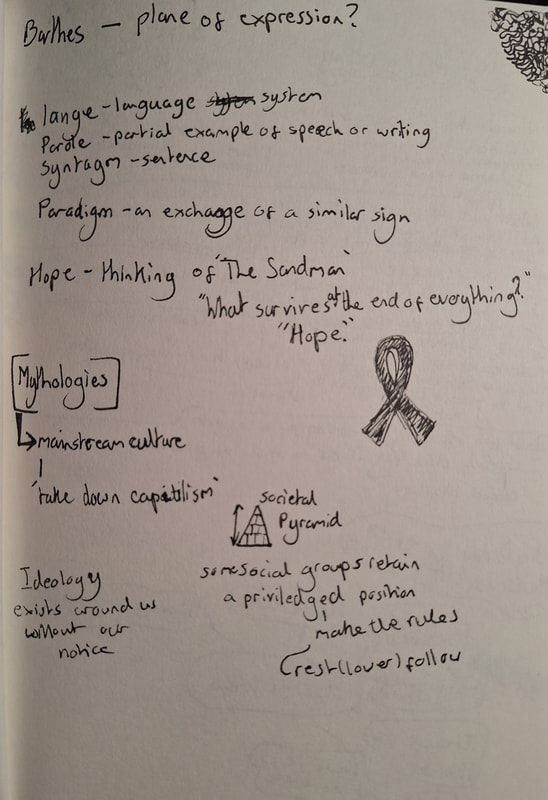 Barthes - plane of expression?
langue - language system
Parole - partial example of speech or writing
Syntagm - sentence
Paradigm - an exchange of a similar sign
Hope - thinking of 'The Sandman'
"What survives at the end of everything?"
"Hope."
Mythologies
mainstream culture
'take down capitilism'
societal
Pyramid
Ideology
exists around us
without our
notice
some social groups retain
a priviledged position
make the rules
rest (lower) follow